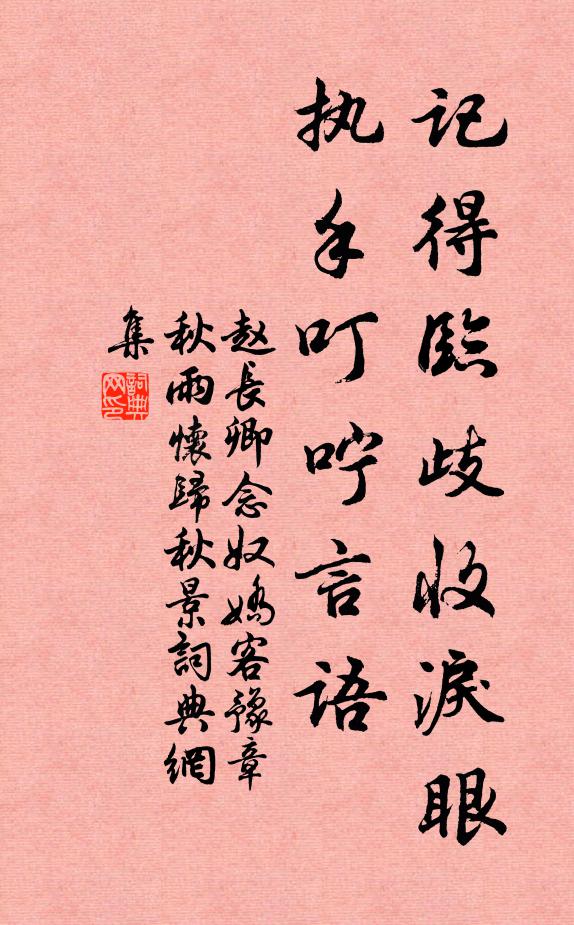 记得臨歧收淚眼
执手叮咛言语
赵長卿念奴嬌客豫章
秋雨懷歸秋景詞典網
集
詞典网印